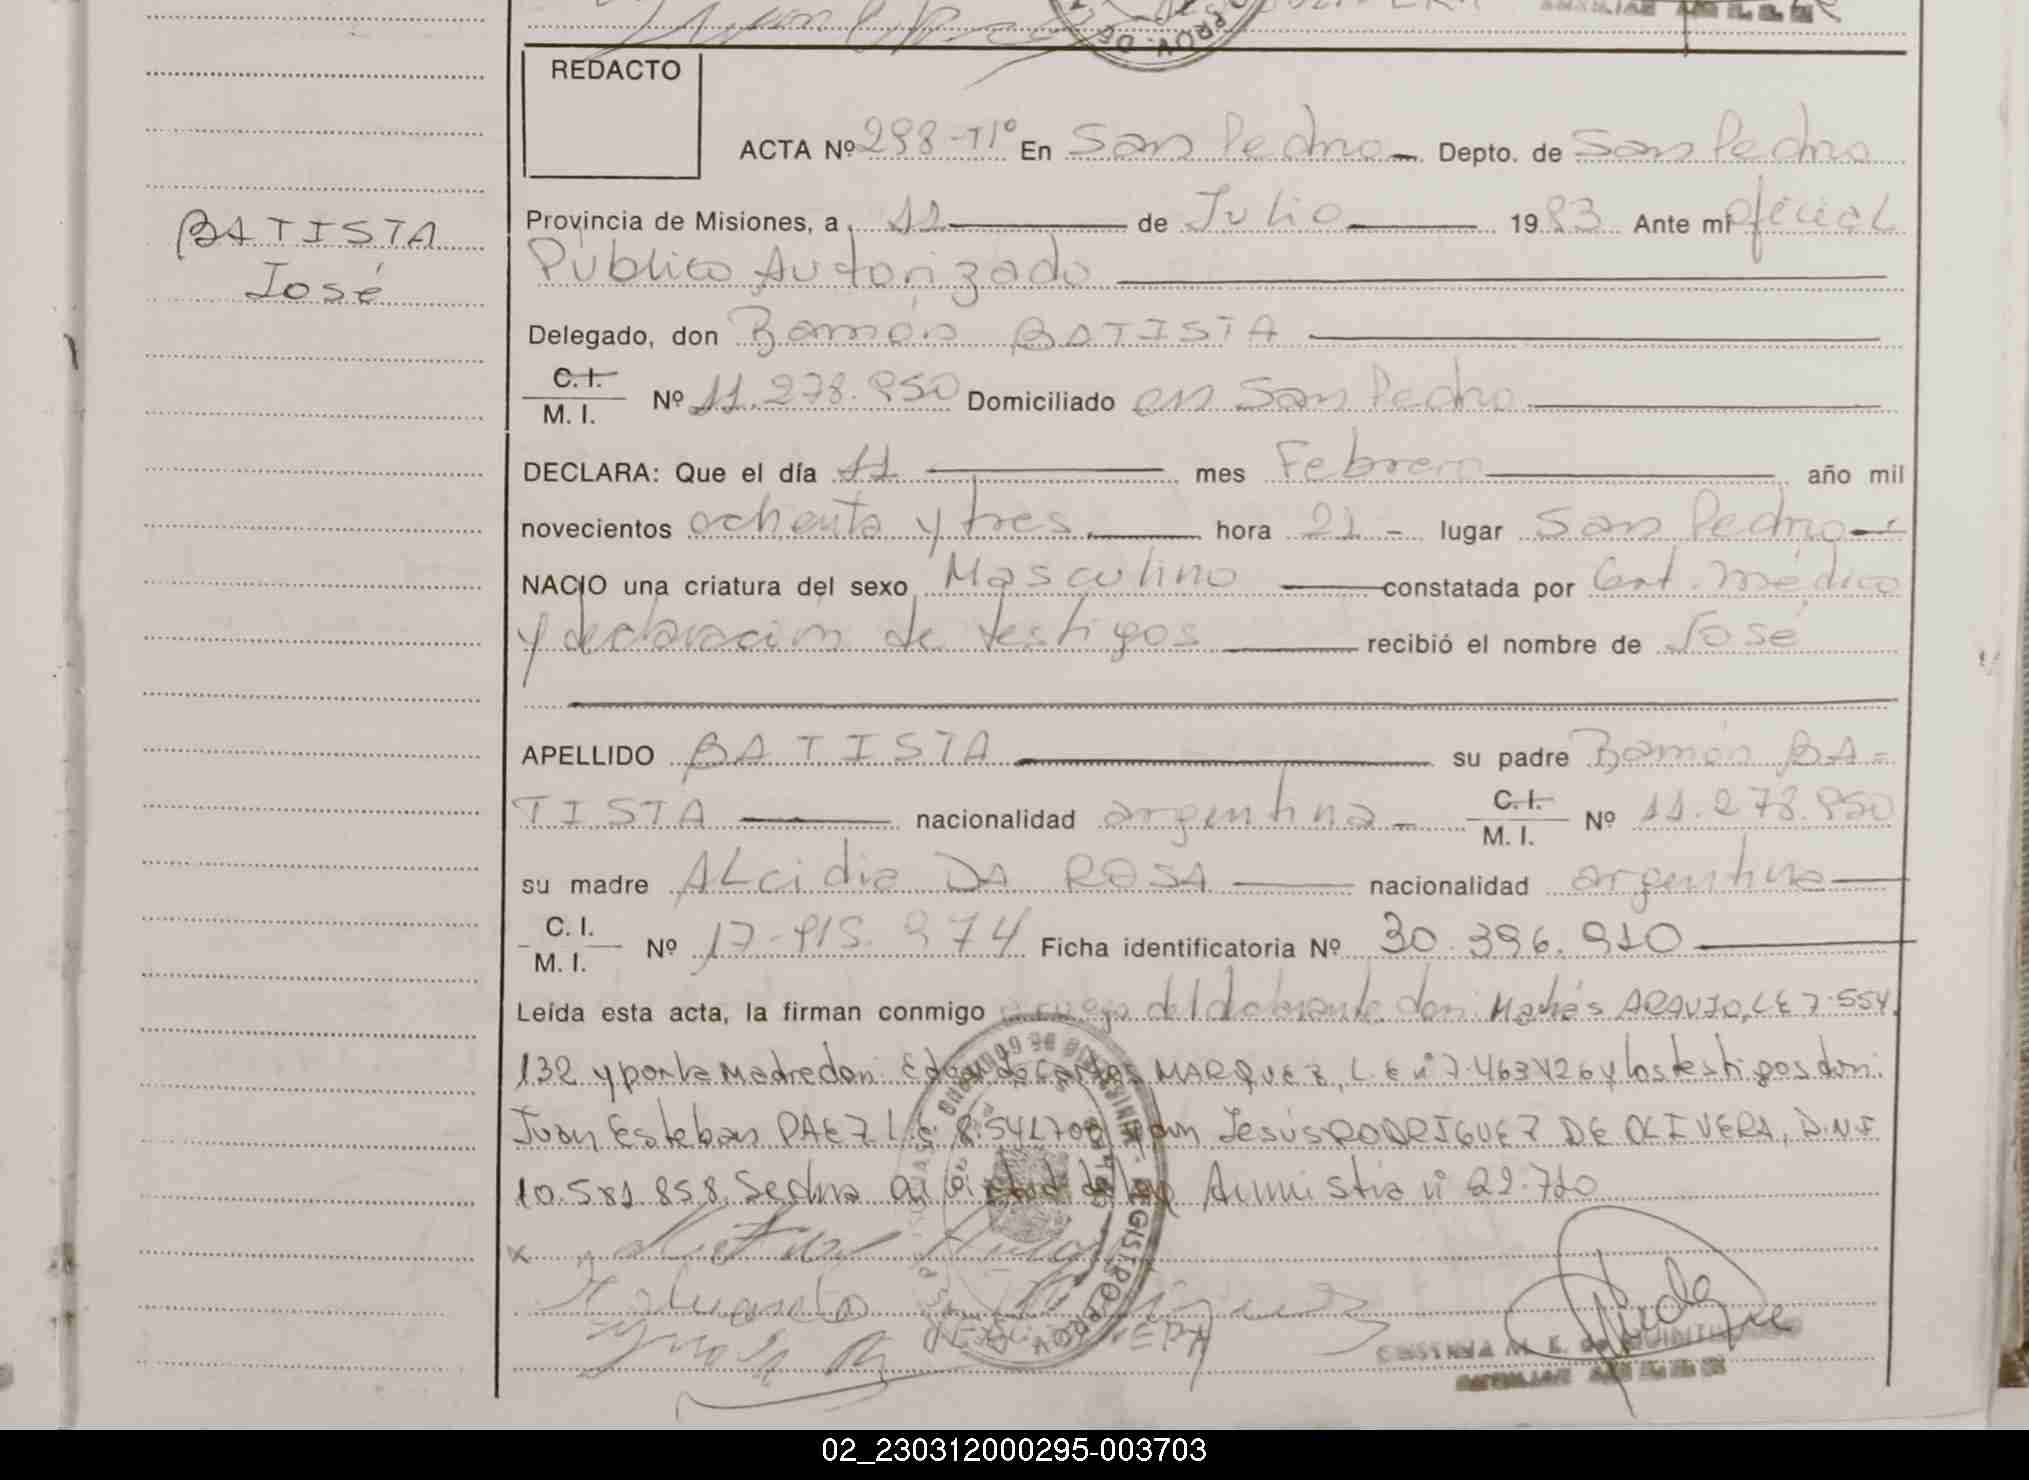 REDACTO
ACTA Nº 298-Tlº En San Pedro Depto. de San Pedro
BATISTA
José
Provincia de Misiones, a 11 de Julio 1983 Ante mí oficial
Público Autorizado
Delegado, don Ramón BATISTA
C. I.
M. I. Nº 11.278.950 Domiciliado en San Pedro
DECLARA: Que el día 11 mes Febrero año mil
novecientos ochenta y tres hora 21 - lugar San Pedro
NACIO una criatura del sexo Masculino constatada por Cert. médico
y declaración de testigos recibió el nombre de José
APELLIDO BATISTA su padre Ramón BA=
TISTA nacionalidad argentina C. I. M. I. Nº 11.278.950
su madre ALcidia DA ROSA nacionalidad argentina
C. I.
M. I. Nº 17-915.974 Ficha identificatoria Nº 30.396.910
Leída esta acta, la firman conmigo a ruego del declarante don: ARAUJO, L E 7.554.
132 y por la Madre don: Eduardo Carlos MARQUEZ, L. E nº 7.463426 y los testigos don:
Juan Esteban PAEZ L.E. 8.541700 y don Jesús RODRIGUEZ DE OLIVERA, D.N.I
10.581.858. Se labra en virtud de Ley Amnistia nº 22.710
02_230312000295-003703